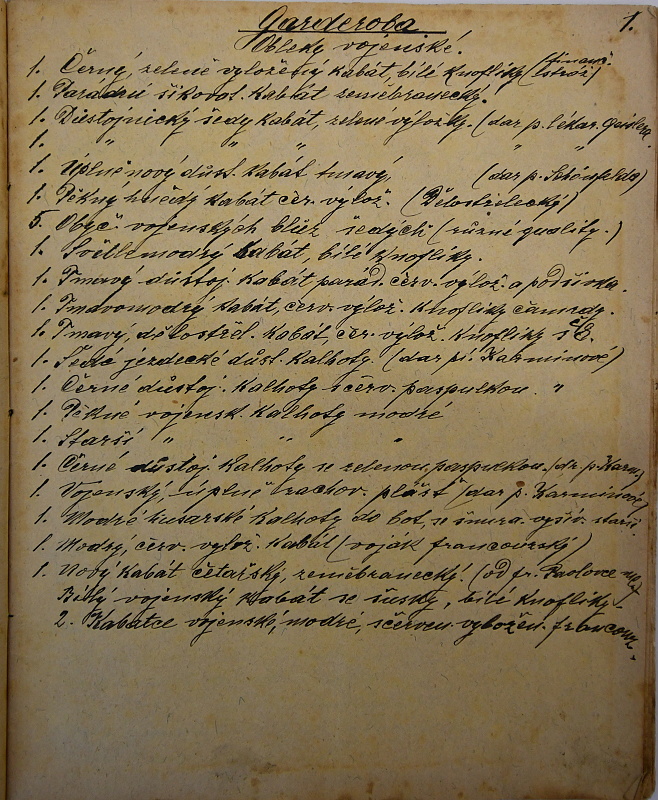 Garderoba 1.
Obleky vojenské.
1. Černý, zeleně vyložený kabát, bílé knoflíky (finanč. stráž)
1. Paradní šikovat. kabát zeměbranecký.
1. Důstojnický šedý kabát, zelené výložky. (dar p. lékar.
1. " " " " "
1. Úplně nový důst. kabát tmavý, (dar p. Schönfelda)
1. Pěkný hnědý kabát čer. vylož. (Dělostřelecký)
5. Obyč. vojenských blůz šedých (různé quality.)
1. Světlemodrý kabát, bílé knoflíky.
1. Tmavý důstoj. kabát parád. červ. vylož. a podšívka.
1. Tmavomodrý kabát, červ. vylož. knoflíky
1. Tmavý, dělostřel. kabát, čer. vylož. knoflíky s
1. Šedé jezdecké důst. kalhoty. (dar pí. Karmínové)
1. Černé důstoj. kalhoty sčerv. paspulkou. "
1. Pěkné vojensk. kalhoty modré
1. Starší " " "
1. Černé důstoj. kalhoty se zelenou paspulkou. (dr. p. Karm.)
1. Vojenský úplně zachov. plášť (dar p. Karmínové)
1. Modré husarské kalhoty do bot, se šnura. vyšív. starší.
1. Modrý, červ. vylož. kabát (voják francouzský)
1. Nový kabát četařský, zeměbranecký. (od fr.
Bílý vojenský kabát se šůsky, bílé knoflíky.
2. Kabátce vojenské, modré, sčerven. vyložen. francouz.